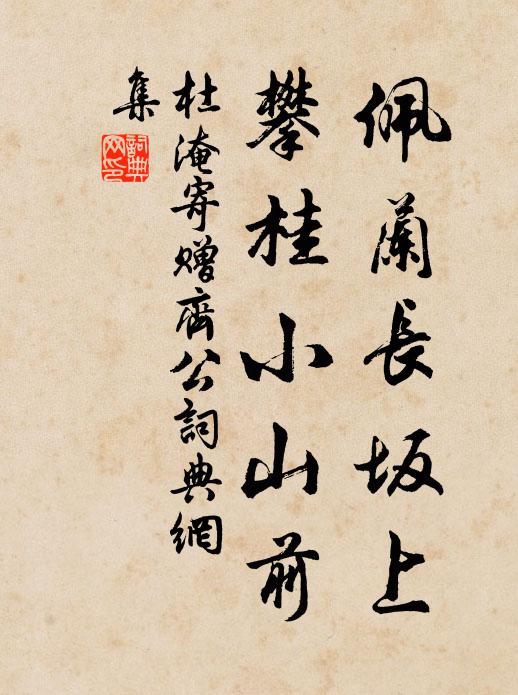 佩蘭長坂上
攀桂小山前
杜淹寄贈齊公詞典網
集
詞典
网印